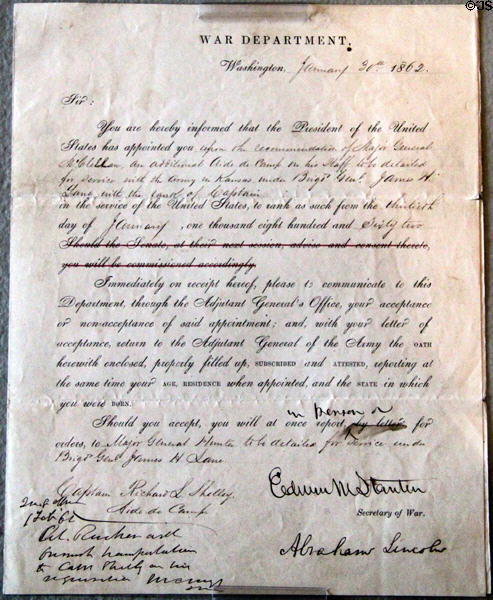 WAR DEPARTMENT.
Washington, January 30th 1862.
Sir:
You are hereby informed that the President of the United
States has appointed you upon the recommendation of Major General
McClellan an additional Aide de Camp on his Staff to be detailed
for service with the Army in Kansas under Brigr Genl James H
Lane with the rank of Captain
in the service of the United States, to rank as such from the thirtieth
day of January, one thousand eight hundred and Sixty two
Should the Senate, at their next session, advise and consent thereto,
you will be commissioned accordingly.
Immediately on receipt hereof, please to communicate to this
Department, through the Adjutant General's Office, your acceptance
or non-acceptance of said appointment; and, with your letter of
acceptance, return to the Adjutant General of the Army the OATH
herewith enclosed, properly filled up, SUBSCRIBED and ATTESTED, reporting at
the same time your AGE, RESIDENCE when appointed, and the STATE in which
you were BORN.
in Person or
Should you accept, you will at once report, by letter for
orders, to Major General Hunter to be detailed for Service under
Brigr Genl James H Lane
Captain Richard L Shelley,
Aide de Camp
Edwin M Stanton
Secretary of War.
Abraham Lincoln
1 Feb 62
Col. Rucker will
furnish transportation
to Capt Shelley on his
requisition